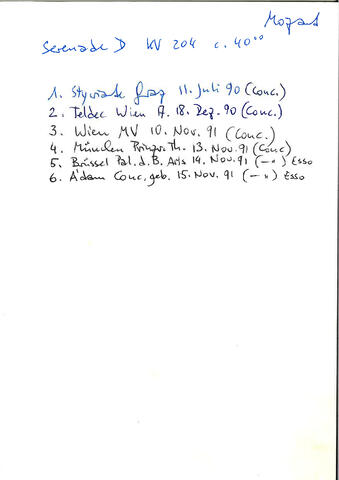 Mozart
Serenade D KV 204 c. 40''
1. Styriarte Graz 11. Juli 90 (Conc.)
2. Teldec Wien A. 18. Dez. 90 (Conc.)
3. Wien MV 10. Nov. 91 (Conc.)
4. München Prinzr. Th. 13. Nov. 91 (Conc)
5. Brüssel Pal. d. B. Arts 14. Nov. 91 (— " ) Esso
6. A'dam Conc. geb. 15. Nov. 91 (— " ) Esso